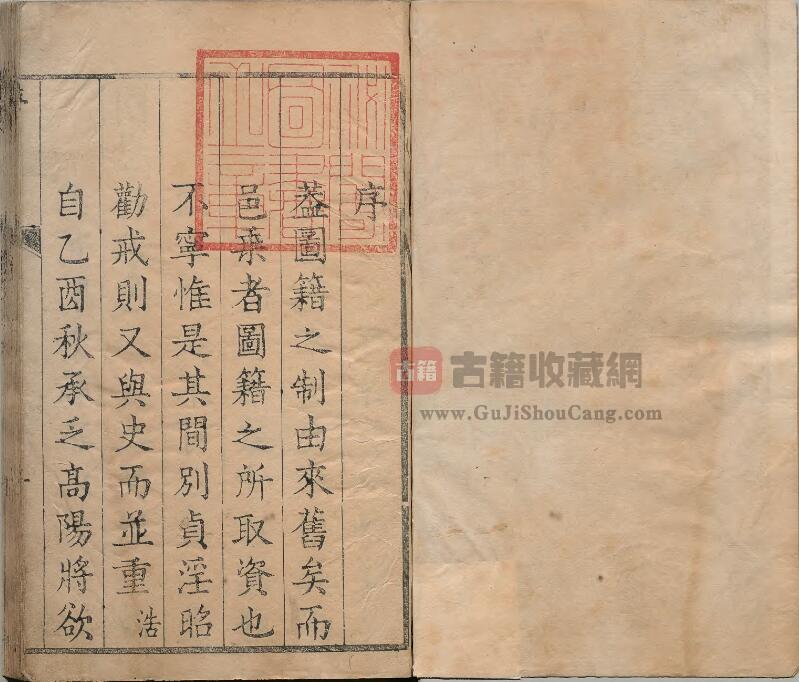 序
葢圖籍之制由來舊矣而
邑乗者圖籍之所取資也
不寧惟是其間別貞淫昭
勸戒則又與史而並重浩
自乙酉秋承乏高陽將欲
古籍 古籍收藏網
www.GuJiShouCang.com